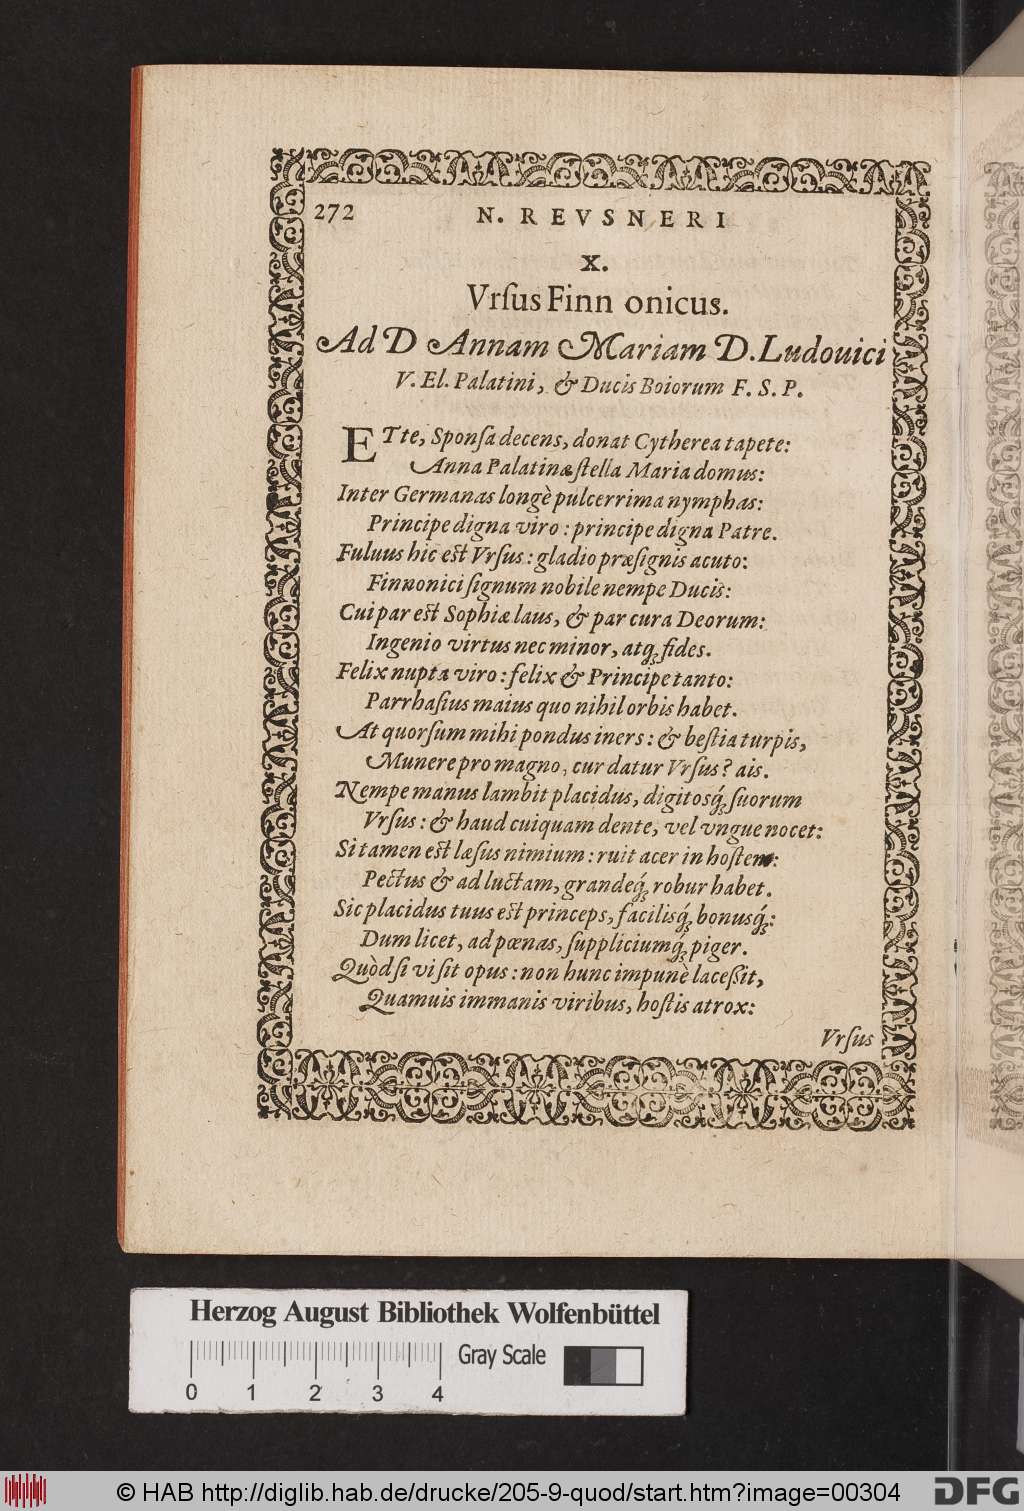 272 N. REVSNERI
X.
Vrſus Finn onicus.
Ad D Annam Mariam D. Ludouici
V. El. Palatini, & Ducis Boiorum F. S. P.
ETte, Sponſa decens, donat Cytherea tapete:
Anna Palatinæ ſtella Maria domus:
Inter Germanas longè pulcerrima nymphas:
Principe digna viro: principe digna Patre.
Fuluus hic est Vrſus: gladio præſignis acuto:
Finnonici ſignum nobile nempe Ducis:
Cui par est Sophiæ laus, & par cura Deorum:
Ingenio virtus nec minor, atq; fides.
Felix nupta viro: felix & Principe tanto:
Parrhaſius maius quo nihil orbis habet.
At quorſum mihi pondus iners: & beſtia turpis,
Munere pro magno, cur datur Vrſus? ais.
Nempe manus lambit placidus, digitosq́; ſuorum
Vrſus: & haud cuiquam dente, vel vngue nocet:
Si tamen est læſus nimium: ruit acer in hoſtem:
Pectus & ad luctam, grandeq́; robur habet.
Sic placidus tuus est princeps, facilisq́; bonusq́;:
Dum licet, ad pœnas, ſuppliciumq́; piger.
Quòd ſi viſit opus: non hunc impunè laceßit,
Quamuis immanis viribus, hoſtis atrox:
Vrſus
Herzog August Bibliothek Wolfenbüttel
Gray Scale
0 1 2 3 4
© HAB http://diglib.hab.de/drucke/205-9-quod/start.htm?image=00304
DFG